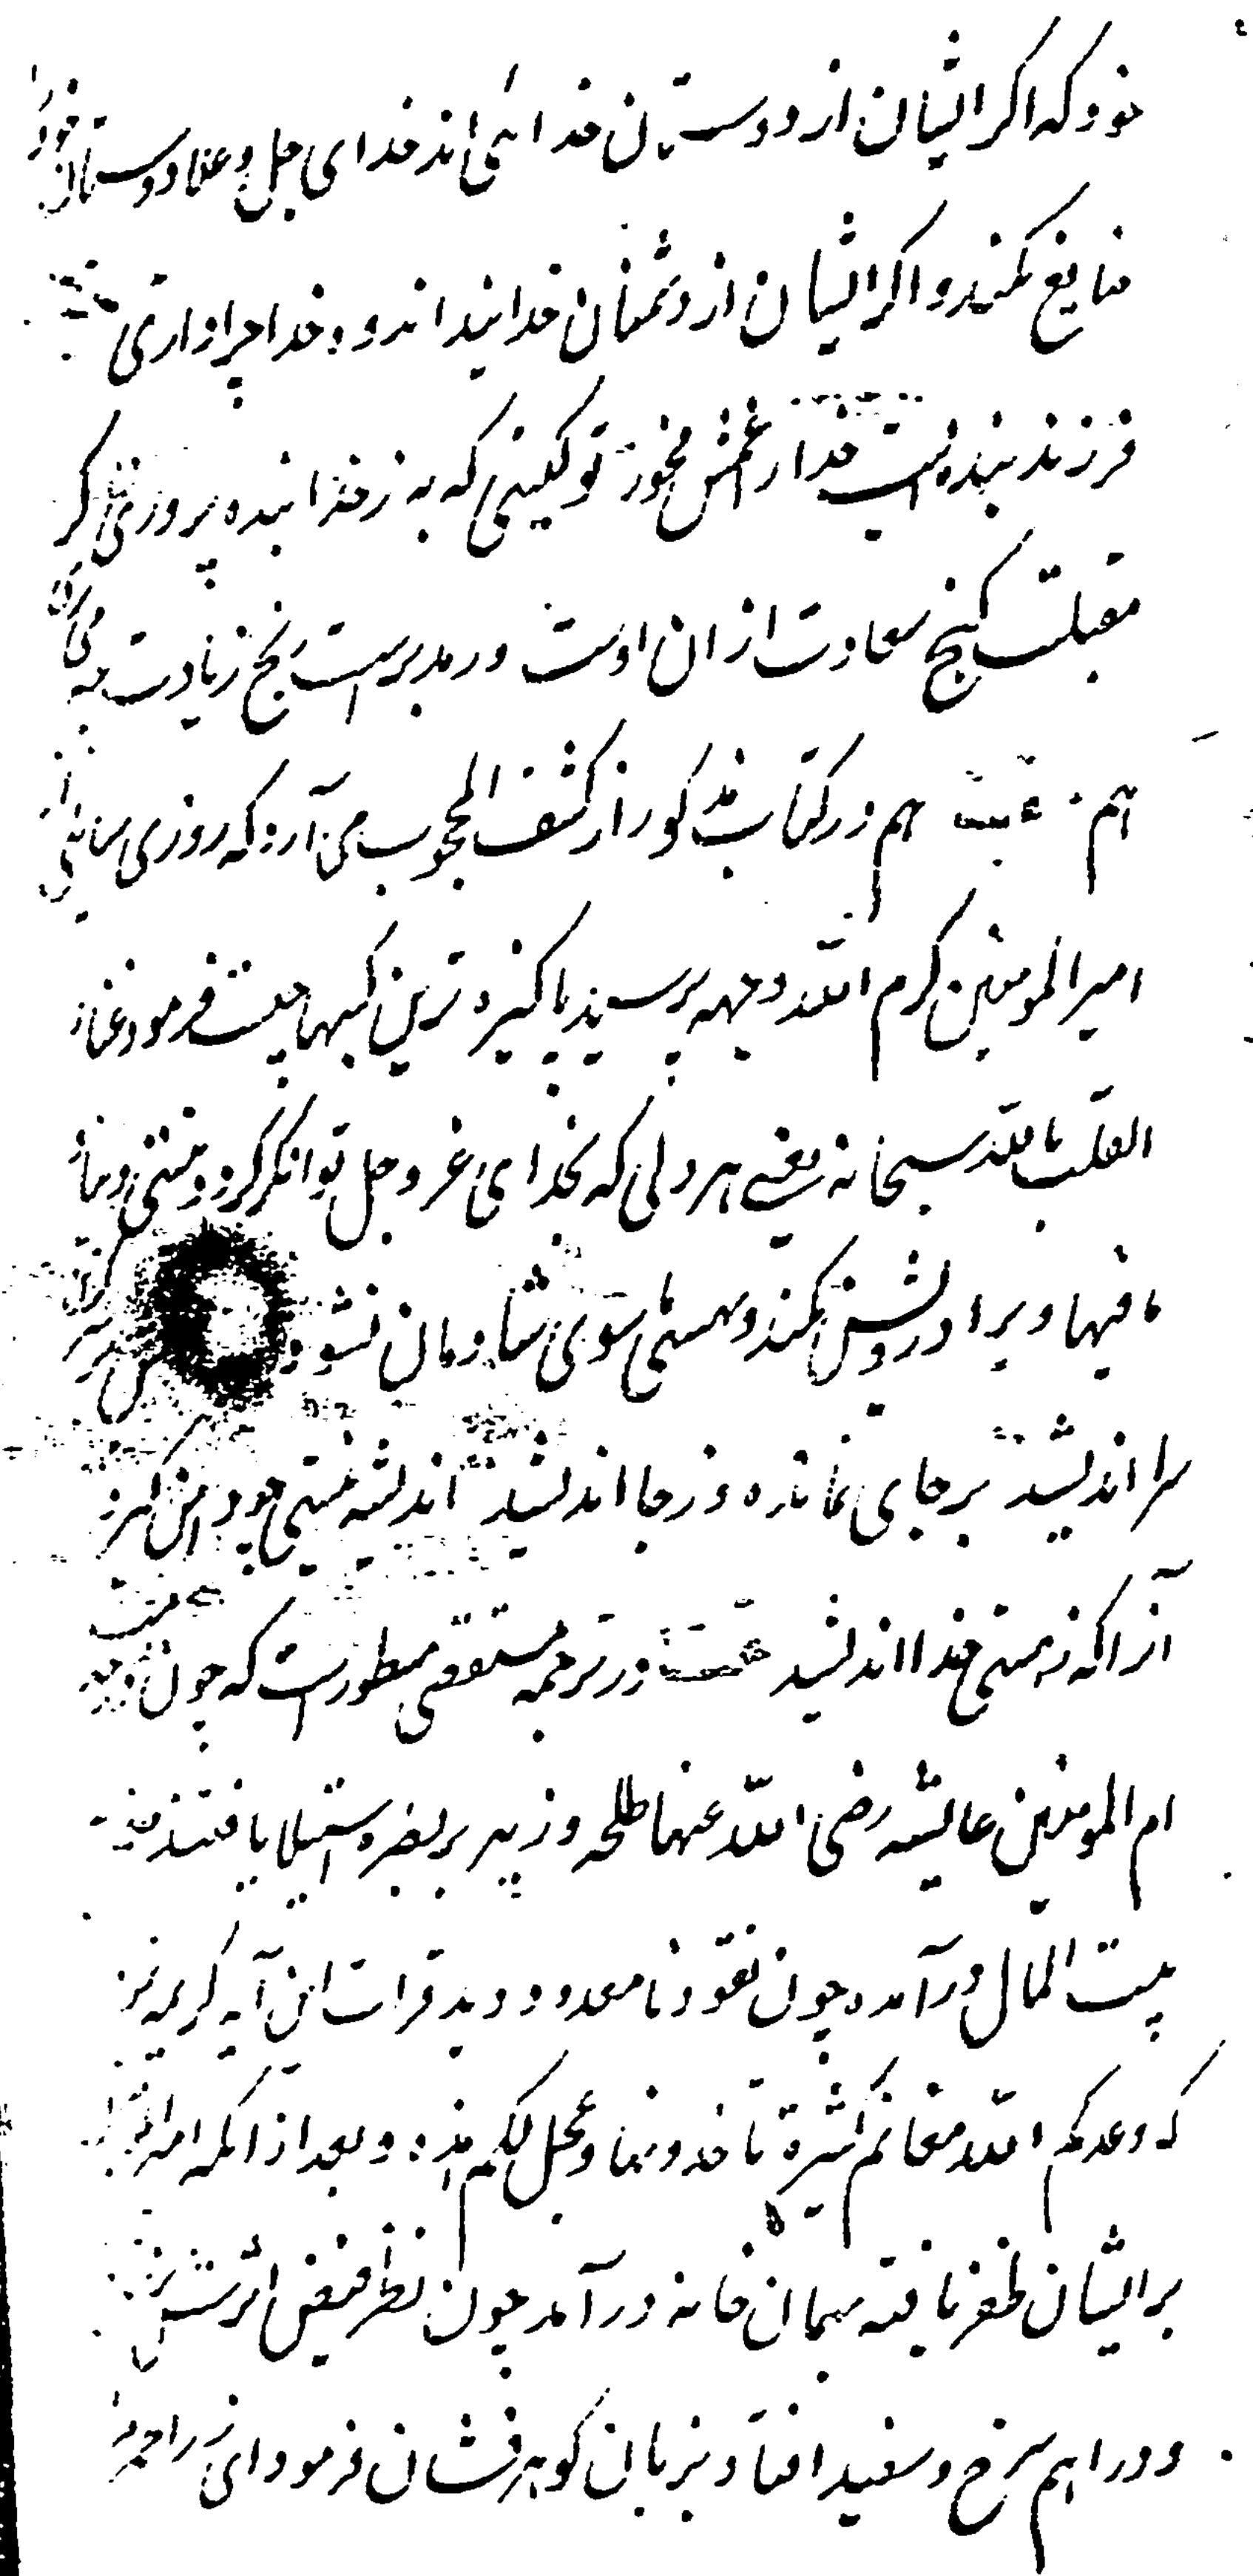 خود که اکر ایشان از دوستان خدائی اند خدای جل و علا دوستان خود را
ضایع نکند و اکر ایشان از دشمنان خدایند اندوه خدا چرا داری
فرزند بنده ایست خدا را غمش مخور تو کیستی که به ز خدا بنده پروری کر
مقبلست کنج سعادت از ان اوست ور مدبرست رنج زیادت چه می
هم در کتاب مذکور از کشف المحجوب می آرد که روزی سایلی از
امیر المومنین کرم الله وجهه پرسید پاکیزه ترین کسبها چیست فرمود غناء
القلب بالله سبحانه یعنی هر دلی که بخدای عز و جل توانکر کردد نیستی دنیا
ما فیها ویرا درویش نکند و هستی سوی شادمان نشود
را اندیشد بر جای نمانده ز جا اندیشد اندیشه نیستی
آنرا که ز هستی خدا اندیشد در ترجمه مستقصی مسطورست که چون
ام المومنین عایشه رضی الله عنها طلحه و زبیر بر بصره استیلا یافتند
بیت المال درآمده چون نقود نامعدود دید قرات این آیه کریمه
که وعدکم الله مغانم کثیرة تاخذونها و عجل لکم هذه و بعد از انکه امیر
بر ایشان ظفر یافته بهمان خانه درآمد چون نظر فیض اثرش
و دراهم سرخ و سفید افتاد بزبان کوهرفشان فرمود ای زر احمر